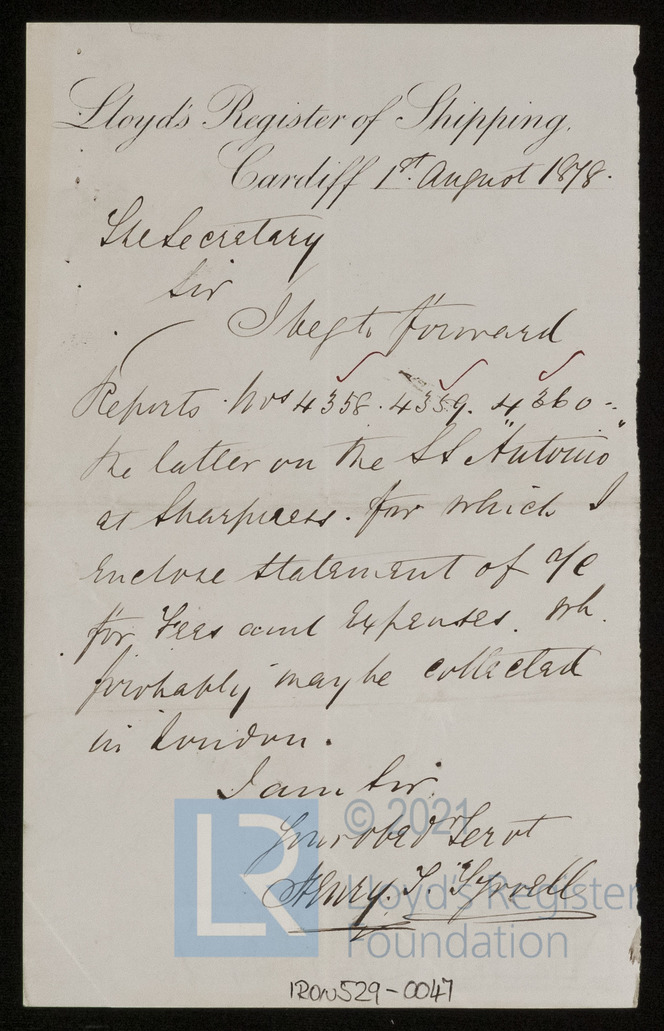 Lloyd's Register of Shipping,
Cardiff 1st. August 1878.
The Secretary
Sir
I beg to forward
Reports Nos 4358. 4359. 4360 -
the latter on the SS "Antonio"
at Sharpness. for which I
enclose statement of a/c
for Fees and Expenses. wh.
probably may be collected
in London.
I am Sir
Your obedt Servt
Henry. T. Tyrrell
© 2021
LR
Lloyd's Register
Foundation
IRON529-0047